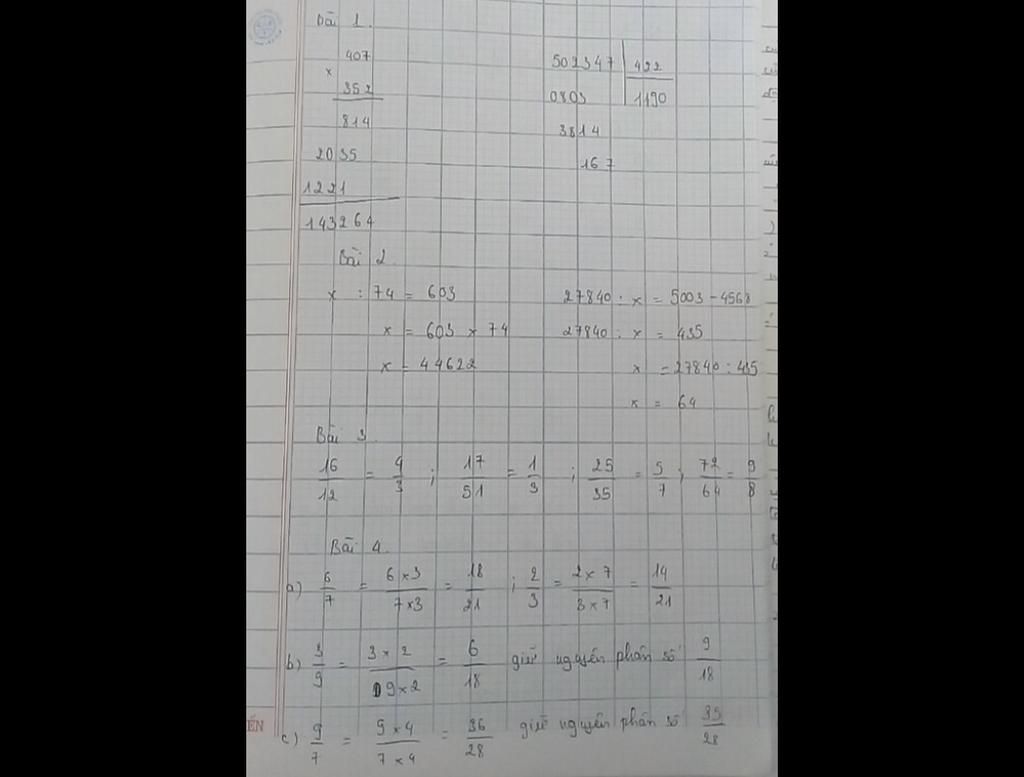 Bài 1.
407
x
352
814
2035
1221
143264
502347 422
0803 1190
3814
167
Bài 2
x : 74 = 603
x = 603 x 74
x = 44622
27840 : x = 5003 - 4568
27840 : x = 435
x = 27840 : 435
x = 64
Bài 3.
16/12 = 4/3 ; 17/51 = 1/3 ; 25/35 = 5/7 ; 72/64 = 9/8
Bài 4.
a) 6/7 = 6 x 3 / 7 x 3 = 18/21 ; 2/3 = 2 x 7 / 3 x 7 = 14/21
b) 3/9 = 3 x 2 / 9 x 2 = 6/18 giữ nguyên phân số 9/18
c) 9/7 = 9 x 4 / 7 x 4 = 36/28 giữ nguyên phân số 35/28
ẾN